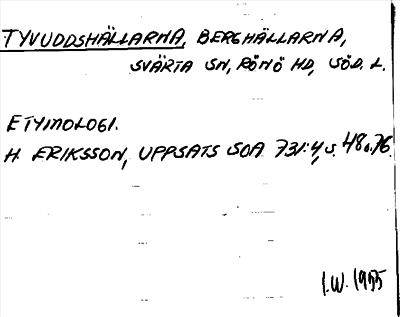 TYVUDDSHÄLLARNA, BERGHÄLLARNA,
SVÄRTA SN, RÖNÖ HD, SÖD. L.
ETYMOLOGI.
H. ERIKSSON, UPPSATS SOA 731:4, s. 48 o. 76.
I.W. 1955